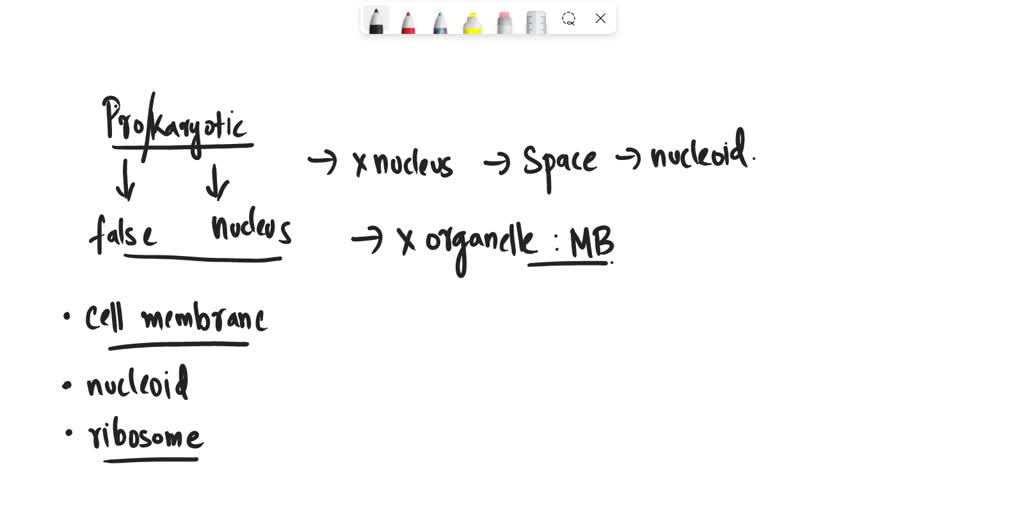 Pro/karyotic
→ x nucleus → Space → nucleoid.
false nucleus
→ x organelle : MB
• cell membrane
• nucleoid
• ribosome